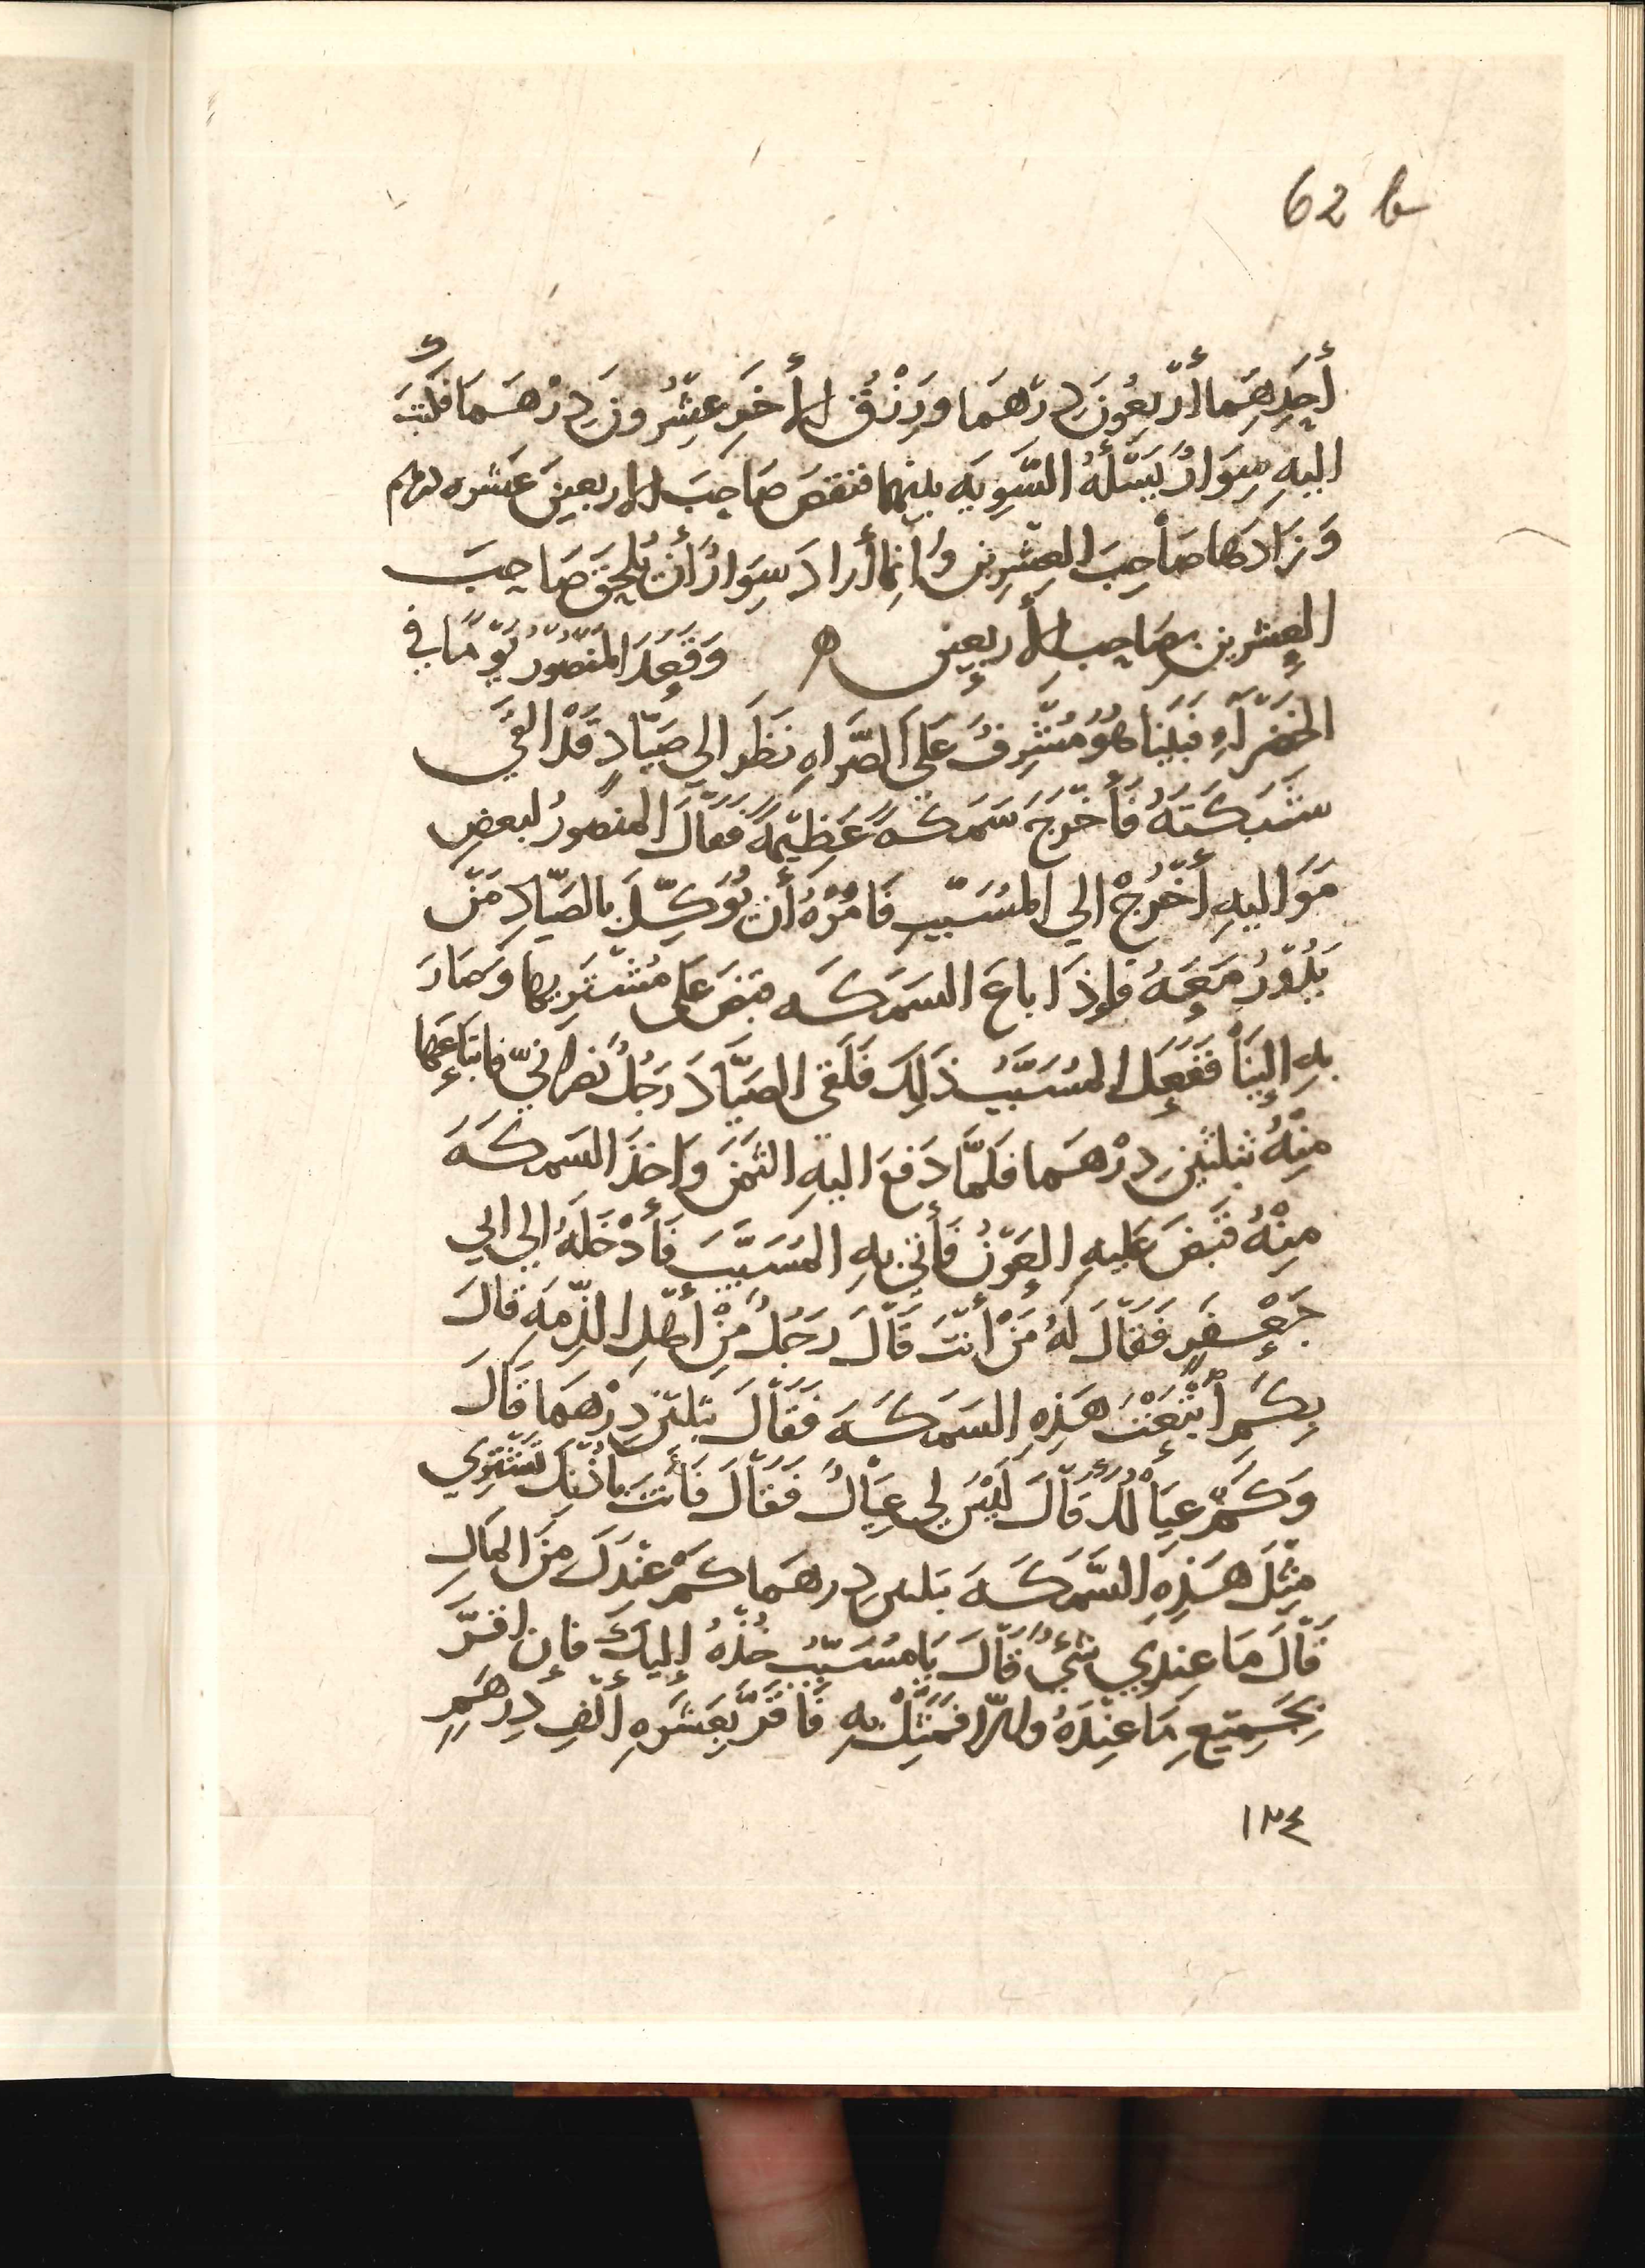 62 b
أَحَدِهِمَا أَرْبَعُونَ دِرْهَمَا وَرِزْقُ الأخَرِ عِشْرُونَ دِرْهَمَا فَكَتَبَ
اليهِ سِوَارُ يَسْئَلُهُ التَّسْوِيَه بينهما فنقصَ صَاحِبَ الاربعينَ عَشره دراهم
وَزَادَهَا صَاحِبَ العِشْرِين وَإنما أَرادَ سِوَارُ أن يُلْحِقَ صَاحِبَ
العِشرين بصَاحِبِ الأربعين ه وَقَعَدَ المَنْصُورُ يَوْمًا في
الخَضْرَآءِ فَبَيْنَا هُوَ مُشْرِفُ عَلَى الصَّرَاهِ نَظَرَ الي صَيَّادٍ قَدْ القَي
شَبَكَتَهُ فَأَخْرَجَ سَمَكَهً عَظِيْمَهً فَقَالَ المنصورُ لبعضِ
مَوَاليهِ أَخْرُجْ الي المُسَيَّبِ فَامُرْهُ أَن يُوَكِّلَ بالصَيَّادِ مَنْ
يَدُوْرُ مَعَهُ فإِذَا باعَ السَمَكَه قبَضَ عَلى مُشْتَرِيهَا وَصَارَ
بِهِ إِلَيْنَا فَفَعَلَ المسَيَّبُ ذَلِكَ فَلَقى الصَيَّادَ رَجُلُ نَصْرَانيّ فابتَاعَهَا
مِنْهُ بثلثينَ دِرْهَمَا فلمَّا دَفعَ اليهِ الثمَنَ وَاخذَ السَمكَهَ
مِنْهُ قبَضَ عَليهِ العَوْنُ فَأَتَى بِهِ المُسَيَّبَ فَأَدْخَلَهُ إلي ابي
جَعْفَرٍ فَقَالَ لَهُ مَنْ أَنْتَ قَالَ رَجُلُ مِنْ أهْلِ الذِّمَهِ قَالَ
بِكَمِ أبْتَعْتَ هَذِهِ السَمَكَهَ فَقَالَ بثلثين دِرْهَمَا قَالَ
وَكَمْ عِيَالُكَ قَالَ لَيْسَ لي عِيَالُ فَقَالَ فَأَنتَ تَشْتَرِي
مِثْلَ هَذِهِ السَّمَكَهَ بثلثين دِرهَمَا كَمْ عِنْدَكَ مِنَ المَالِ
قَالَ مَا عِندي شَيءُ قَالَ يَا مُسَيَّبُ خُذْهُ إِلَيكَ فإن اقرَّ
بجَمِيعِ مَا عِنْدَهُ وَإلّا فمَثِّلْ بِهِ فَاقرَّ بِعَشَرهِ ألفِ دِرهَمٍ
١٣٤